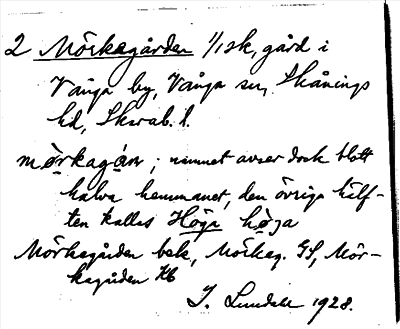 2 Mörkagården 1/1 sk, gård i
Vånga by, Vånga sn, Skånings
hd, Skarab. l.
mörkagán; namnet avser dock blott
halva hemmanet, den övriga hälf-
ten kallas Höga höga
Mörkagården bek, Mörkag. GS, Mör-
kagården Kb
J. Lundahl 1928.